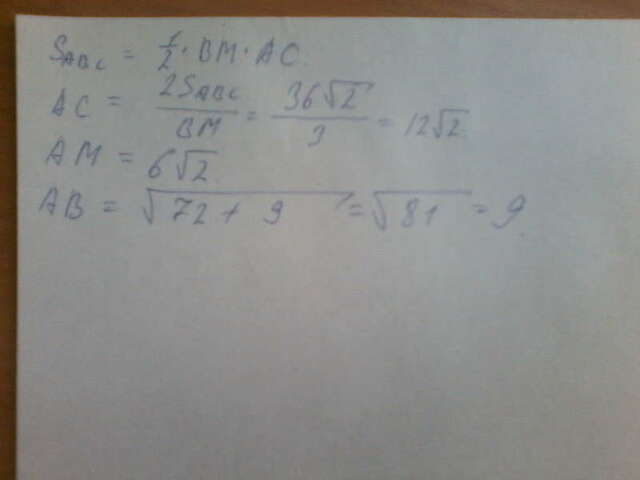 S_ABC = 1/2 · BM · AC.
AC = 2S_ABC/BM = 36√2/3 = 12√2
AM = 6√2
AB = √(72 + 9) = √81 = 9